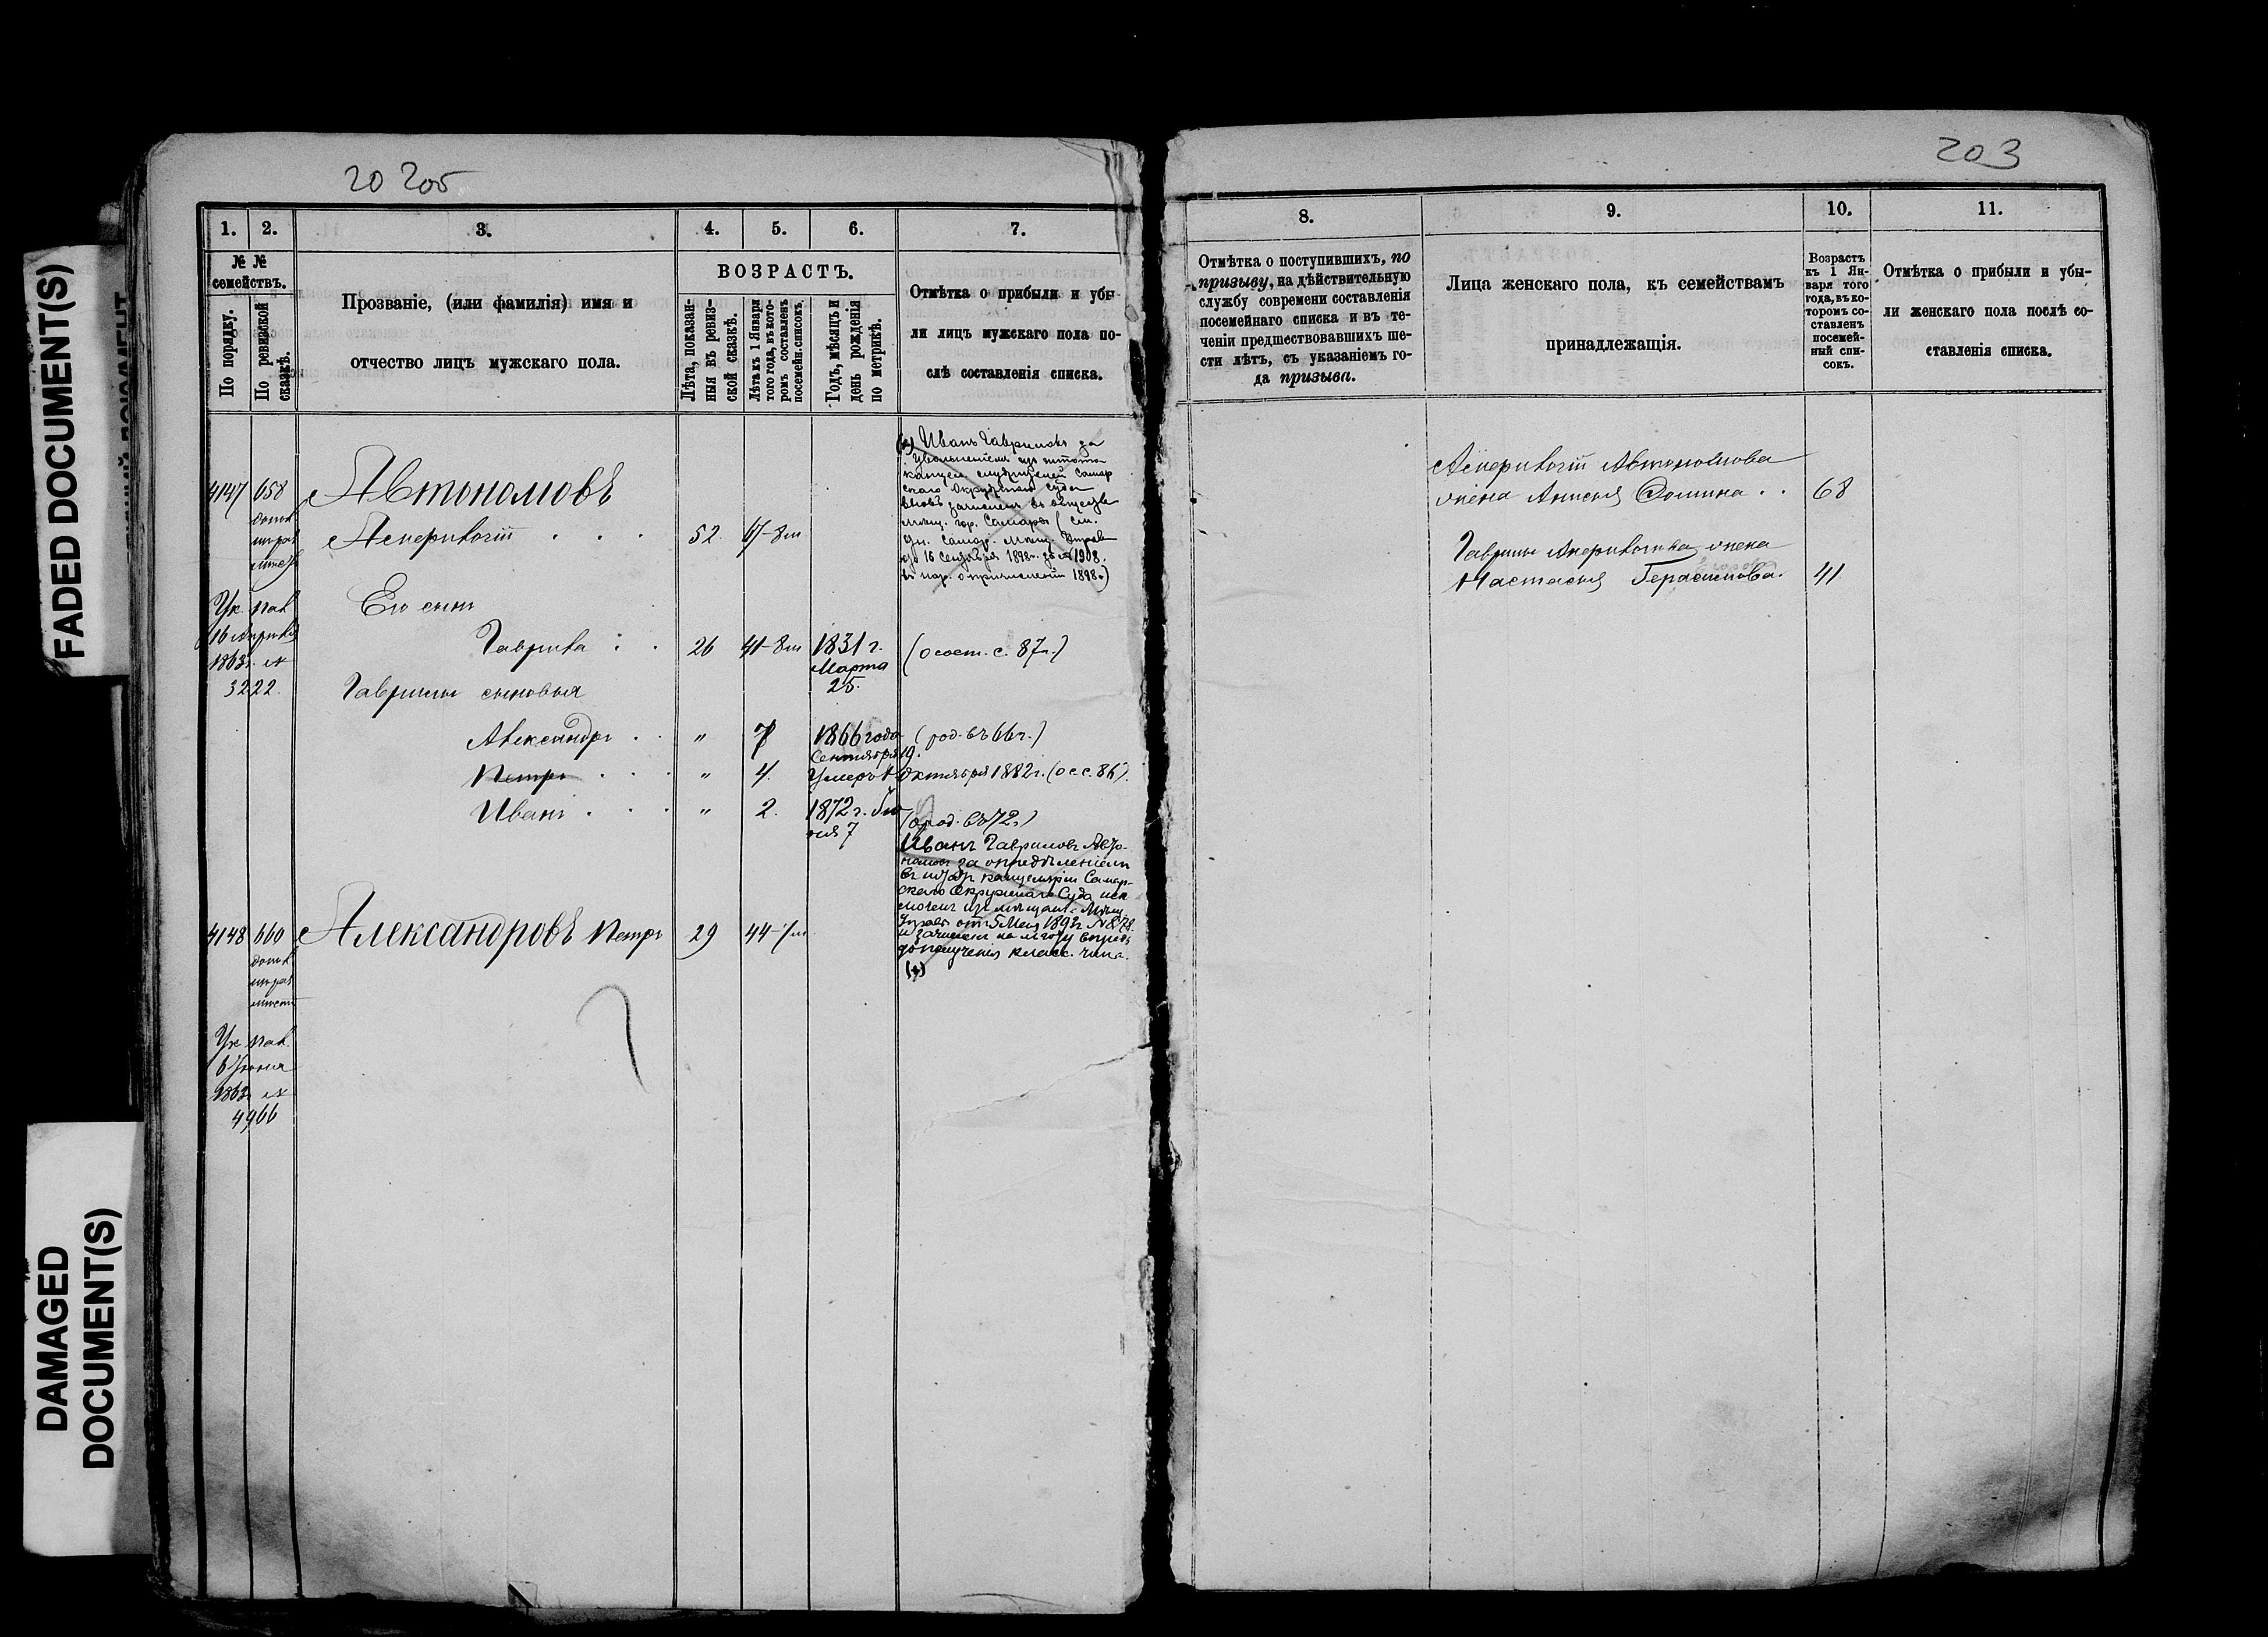 FADED DOCUMENT(S)
DAMAGED
DOCUMENT(S)
20 205
1. 2. 3. 4. 5. 6. 7.
№ №
семействъ.
По порядку.
По ревизской
сказкѣ.
Прозваніе, (или фамилія) имя и
отчество лицъ мужскаго пола.
ВОЗРАСТЪ.
Лѣта, показан-
ныя въ ревиз-
ской сказкѣ.
Лѣта къ 1 Января
того года, въ кото-
ромъ составленъ
посемейн. списокъ.
Годъ, мѣсяцъ и
день рожденія
по метрикѣ.
Отмѣтка о прибыли и убы-
ли лицъ мужскаго пола по-
слѣ составленія списка.
(×) Иванъ Гавриловъ за
увольненіемъ изъ штата
канцел. служителей Самар
скаго Окружнаго суда
вновь зачисленъ въ общество
мѣщ. гор. Самары (см.
Самар. мѣщ. Управ
16 Сентября 1898 г. за № 1908.
о причисленіи 1898.)
4147 658 Автономовъ
Аспериктій . . . 52. 67-8 м
Ук. пал
16 Апрѣля
1863 г. №
3222.
Его сынъ
Гаврила . . 26 41-8 м 1831 г.
Марта
25.
(о сост. с. 87 г.)
Гаврилы сыновья
Александръ . . " 7 1866 года
Сентября 19.
(род. въ 66 г.)
Петръ . . . " 4. Умеръ Октября 1882 г. (о с с. 86).
Иванъ . . . " 2. 1872 г. Iю
ня 7
(о род. въ 72 г.)
Иванъ Гавриловъ Авто-
номовъ за опредѣленіемъ
въ штатъ канцеляріи Самар-
скаго Окружнаго Суда иск
люченъ изъ мѣщанъ Мѣщ.
Управ. отъ 5 Мая 1892 г. №
до полученія класс. чина.
(×)
4148 660 Александровъ Петръ 29 44-7 м
Ук. пал.
6 Iюня
1863 г. №
4966
203
8. 9. 10. 11.
Отмѣтка о поступившихъ, по
призыву, на дѣйствительную
службу современи составленія
посемейнаго списка и въ те-
ченіи предшествовавшихъ ше-
сти лѣтъ, съ указаніемъ го-
да призыва.
Лица женскаго пола, къ семействамъ
принадлежащія.
Возрастъ
къ 1 Ян-
варя того
года, въ ко-
торомъ со-
ставленъ
посемей-
ный спи-
сокъ.
Отмѣтка о прибыли и убы-
ли женскаго пола послѣ со-
ставленія списка.
Автономова
жена Анисья Фомина . . 68
Гаврилы жена
Настасья Герасимова. 41